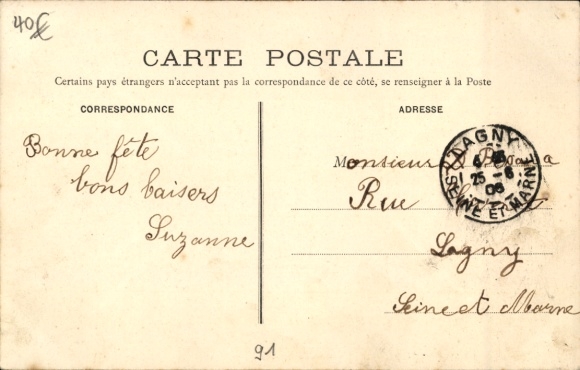 40€
CARTE POSTALE
Certains pays étrangers n'acceptant pas la correspondance de ce côté, se renseigner à la Poste
CORRESPONDANCE
Bonne fête
bons baisers
Suzanne
91
ADRESSE
Monsieur
Rue
Lagny
Seine et Marne
LAGNY
25 - 6
SEINE ET MARNE